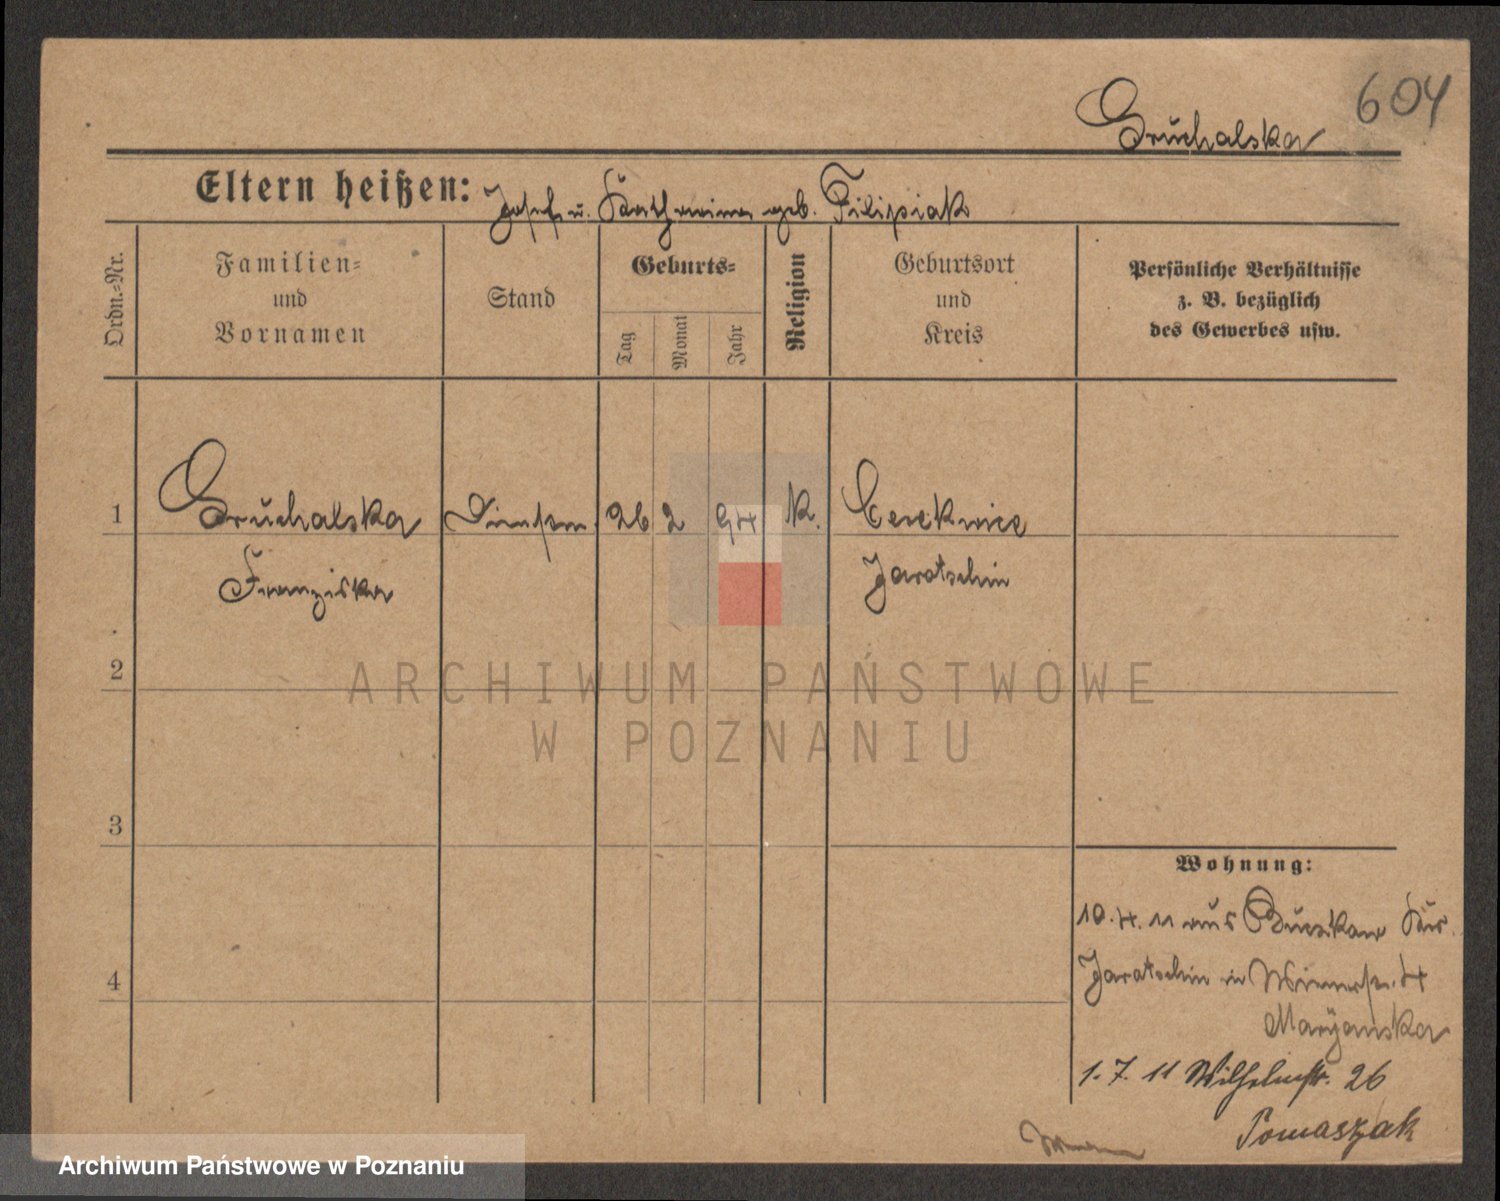 604
Gruchalska
Eltern heißen: Josef u. Katharina geb. Filipiak
Ordn.=Nr.
Familien=
und
Vornamen
Stand
Geburts=
Tag
Monat
Jahr
Religion
Geburtsort
und
Kreis
Persönliche Verhältnisse
z. B. bezüglich
des Gewerbes usw.
1 Gruchalska 26 2 94 K. Cerekwice
Franziska Jarotschin
2
3
4
Wohnung:
10. 4. 11 aus
Jarotschin in 4
Maryanska
1. 7. 11 Wilhelmstr. 26
Tomaszak
ARCHIWUM PAŃSTWOWE
W POZNANIU
Archiwum Państwowe w Poznaniu